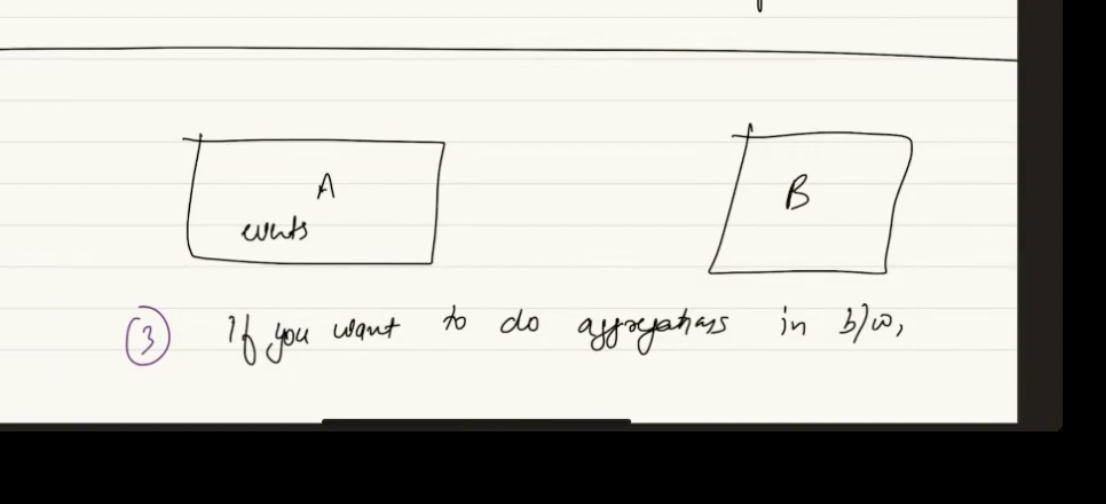 A
B
events
3 If you want to do aggregations in b/w,